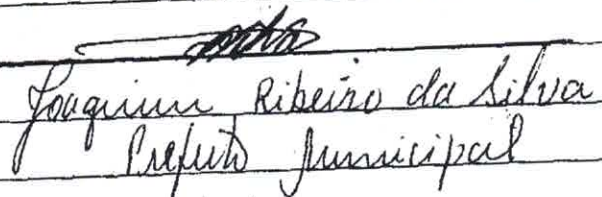 Joaquim Ribeiro da Silva
Prefeito Municipal